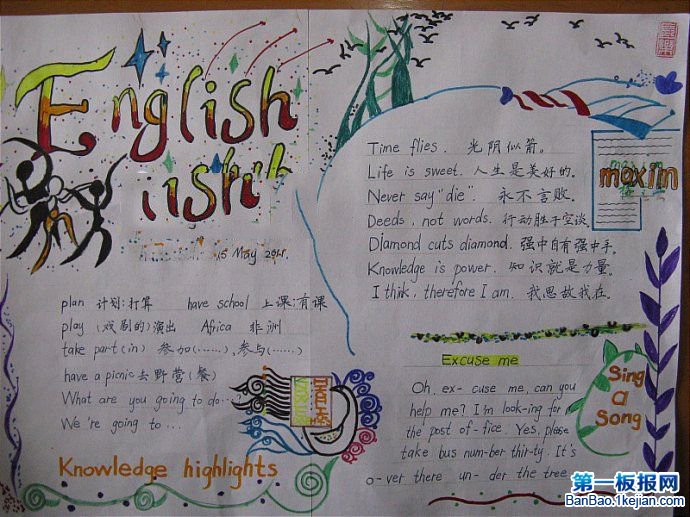 English
15 May
plan 计划;打算 have school 上课;有课
play (戏剧的)演出 Africa 非洲
take part (in) 参加(……),参与(……)
have a picnic 去野营(餐)
What are you going to do…
We're going to …
Knowledge highlights
Time flies. 光阴似箭。
Life is sweet. 人生是美好的.
Never say "die". 永不言败.
Deeds, not words. 行动胜于空谈.
DIamond cuts diamond. 强中自有强中手.
Knowledge is power. 知识就是力量.
I thik, therefore I am. 我思故我在.
maxim
Excuse me
Oh, ex- cuse me, can you
help me? I'm look-ing for a
the post of-fice. Yes, please
take bus num-ber thir-ty. It's
o-ver there un- der the tree
Sing
a
Song
第一板报网
BanBao.1kejian.com